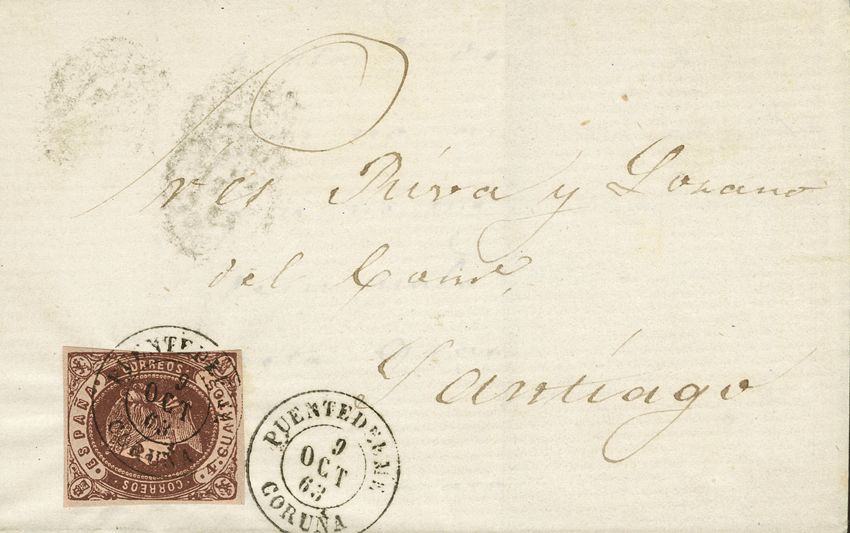 Sres Riva y Lozano
del Comº
Santiago
PUENTEDEUME
9
OCT
63
CORUÑA
CORREOS
ESPAÑA
4 CUARTOS
CORREOS
PUENTEDEUME
9
OCT
63
CORUÑA